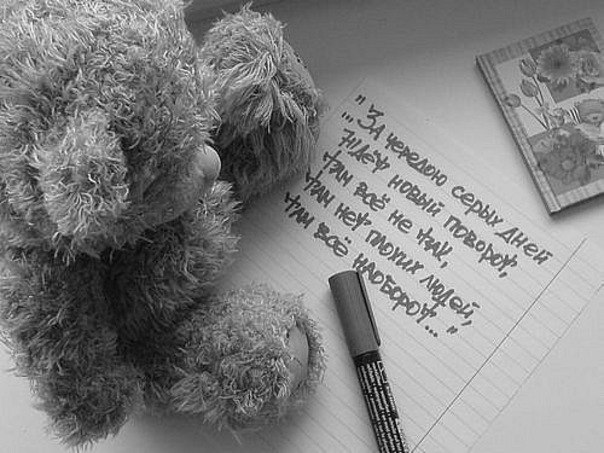 "За чередою серых дней
...ждёт новый поворот,
там всё не так,
там нет плохих людей,
там всё наоборот..."